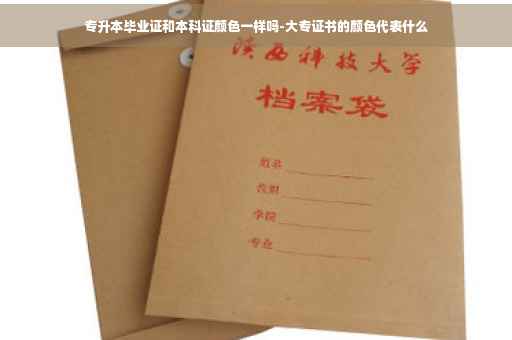 专升本毕业证和本科证颜色一样吗-大专证书的颜色代表什么
陕西科技大学
档案袋
姓名
学院
专业